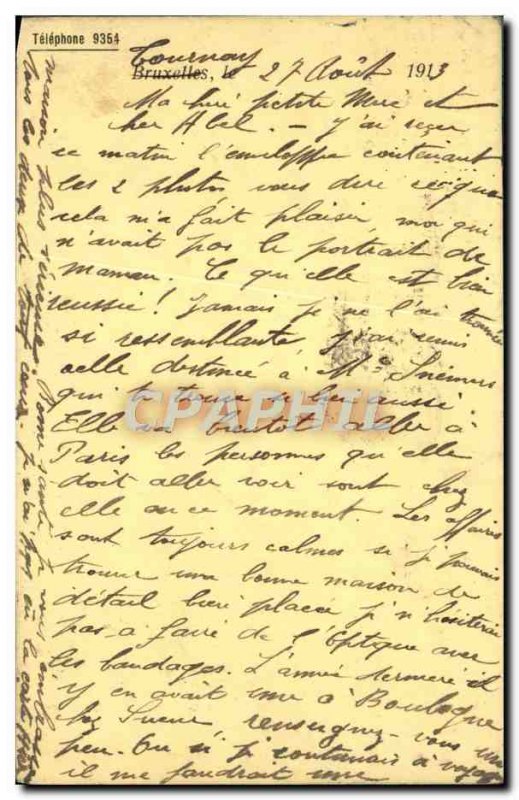 Téléphone 9354
Tournay
Bruxelles, le 27 Août 1913
Ma chère petite Mère et
cher Abel. - J'ai reçu
ce matin l'enveloppe contenant
les 2 photos vous dire ce que
cela m'a fait plaisir, moi qui
n'avait pas le portrait de
maman. Ce qu'elle est bien
reussie! Jamais je ne l'ai trouvée
si ressemblante, j'ai remis
celle destinée à Mme
qui te trouve si bien aussi
Elle va bientôt aller à
Paris les personnes qu'elle
doit aller voir sont chez
elle en ce moment. Les affaires
sont toujours calmes si je pouvais
trouver une bonne maison de
détail bien placée je n'hésiterai
pas à faire de l'Optique avec
les bandages. L'année dernière il
y en avait une à Boulogne
chez Sueur renseignez-vous un
peu. Ou si je continuais à voyager
il me faudrait une
maison plus sérieuse. Bonne santé je vous embrasse
tous les deux de tout coeur
CPAPHIL